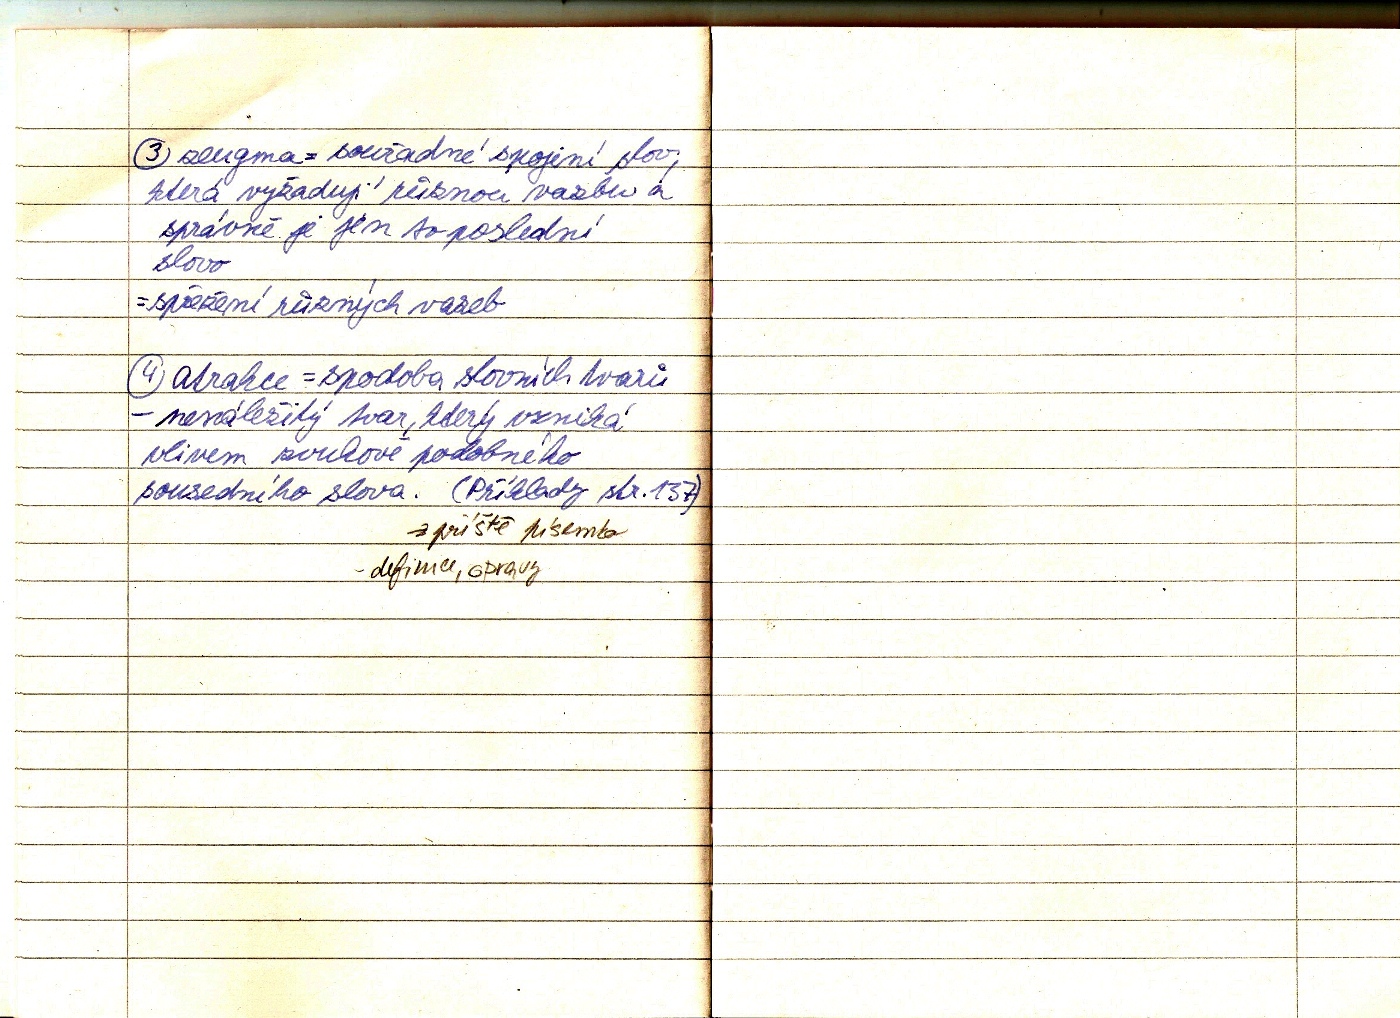 ③ zeugma = souřadné spojení slov,
která vyžadují různou vazbu a
správně je jen to poslední
slovo
= spřežení různých vazeb
④ atrakce = spodoba slovních tvarů
- nenáležitý tvar, který vzniká
vlivem zvukově podobného
sousedního slova. (Příklady str. 137)
⇒ příště písemka
- definice, opravy